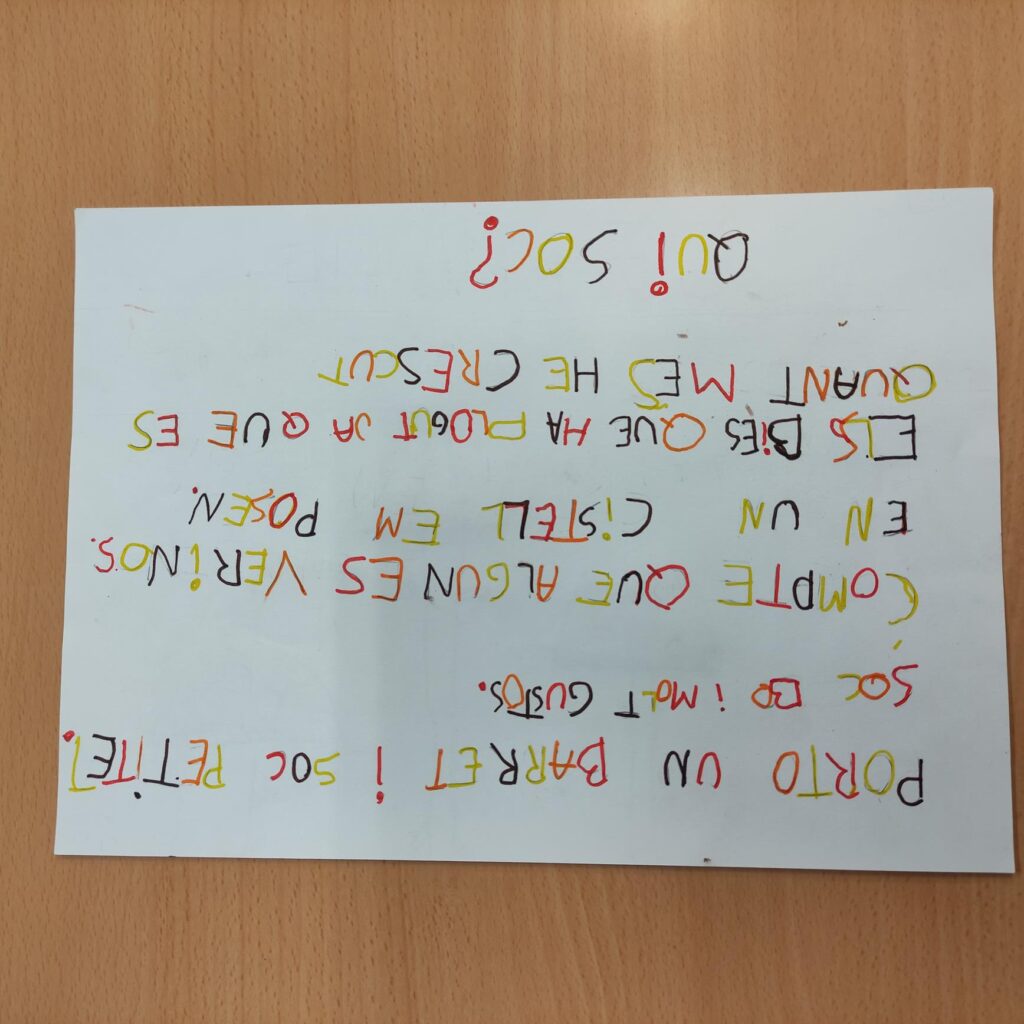 PORTO UN BARRET i SOC PETITET.
SOC BO i MOLT GUSTOS.
COMPTE QUE ALGUN ES VERiNOS.
EN UN CiSTELL EM POSEN.
ELS DiES QUE HA PLOGUT JA QUE ES
QUANT MES HE CRESCUT
QUi SOC?